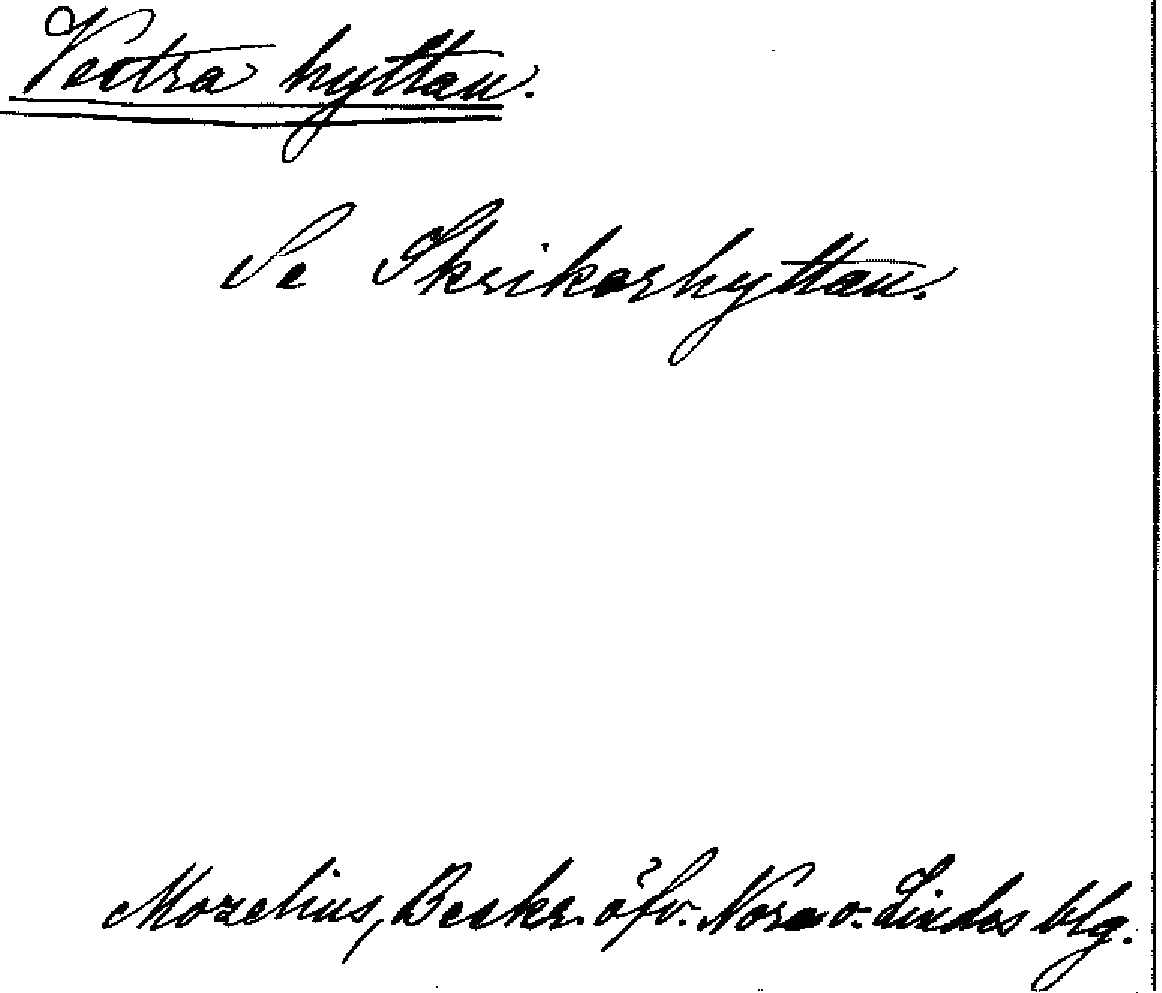 Vestra hyttan.
Se Skrikarhyttan.
Mozelius, Beskr. öfv. Nora o. Lindes blg.